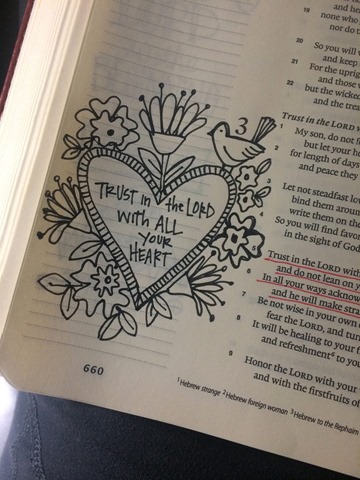 TRUST in the LORD
With ALL
YOUR
HEART
660
19 none who
nor do
20 So you will
and keep
21 For the uprigh
and those
22 but the wicked
and the tr
Trust in the LORD w
3
1 My son, do not f
but let your h
2 for length of days
and peace they
3 Let not steadfast lo
bind them aroun
write them on th
4 So you will find favo
in the sight of God
5 Trust in the LORD with
and do not lean on y
6 In all your ways acknow
and he will make stra
7 Be not wise in your own
fear the LORD, and turn
8 It will be healing to your
and refreshment⁶ to you
9 Honor the LORD with your
and with the firstfruits of
¹Hebrew strange ²Hebrew foreign woman ³Hebrew to the Rephaim